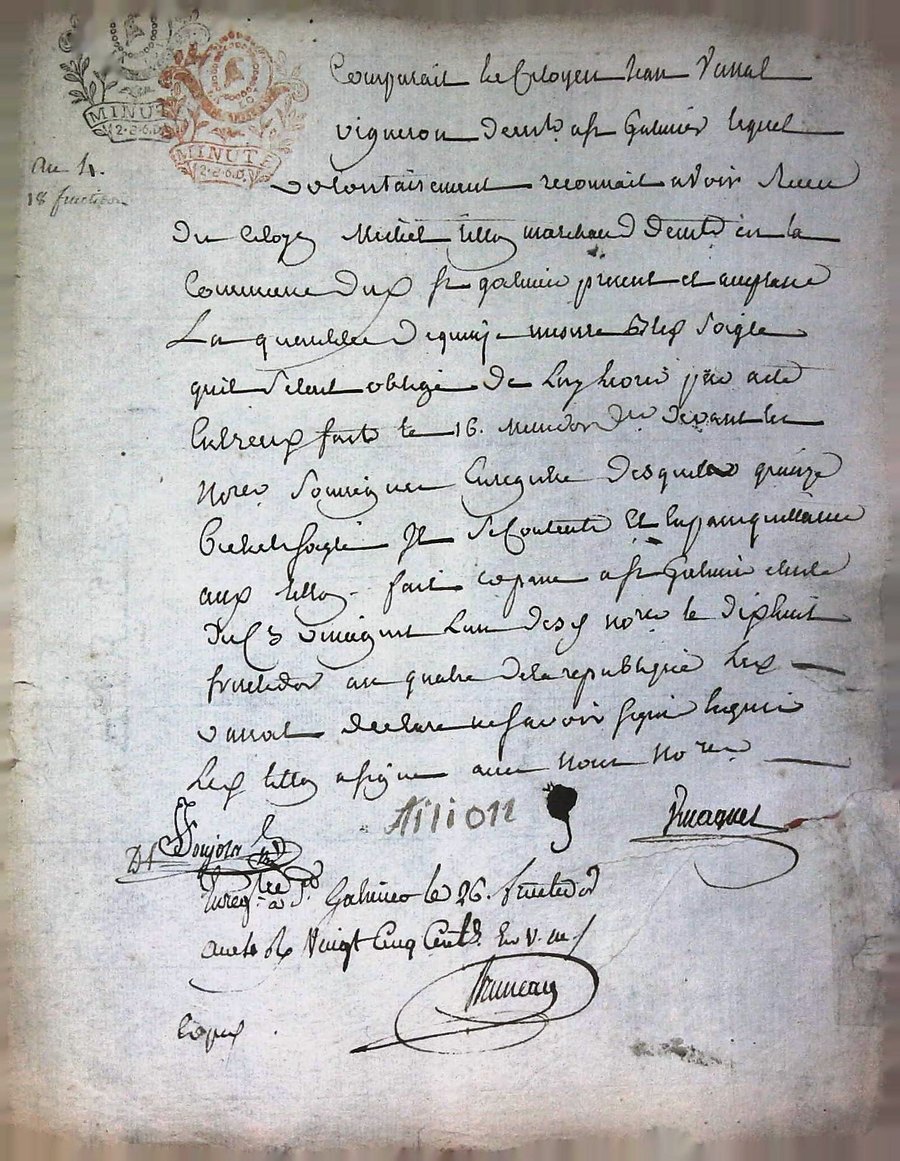 MINUT
12·S·6D
MINUTE
12·S·6D
an 4.
18 fructidor
Comparait le Citoyen Jean Vanal
vigneron demt a st Galmier lequel
volontairement reconnait avoir Receu
du Citoyen Michel tillon marchand demt en la
Commune dud st galmier present et acceptant
La quantitée de quinze mesure Bled Soigle
quil S'etait obligé de luy par acte
Entreux fait le 16. Messidor dr devant le
Noreo Soussigné Enregistré desquels quinze
Bichet soigle Il Se Contente Et en passe quittance
aud tillon fait et passé a st Galmier etude
du Soussigné L'un des noreo le dixhuit
fructidor an quatre de la republique led
vanal declare ne Savoir Signer Enquis
Led tillon a signé avec Nous Noreo
tition
Enregtré a St Galmier le 26. fructidor
an 4e Rx Vingt Cinq Cents. En v. m/
Bruneau